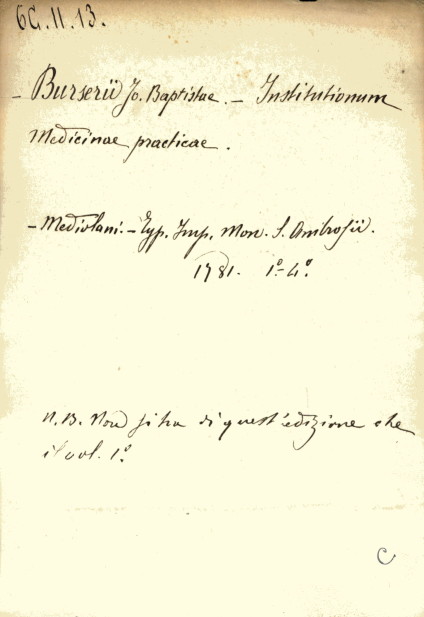 6G.II.13.
- Burserii Jo. Baptistae. - Institutionum
Medicinae practicae.
- Mediolani. - Typ. Imp. Mon. S. Ambrosii.
1781. 1º- 4º.
N. B. Non si ha di quest'edizione che
il vol. 1º.
C